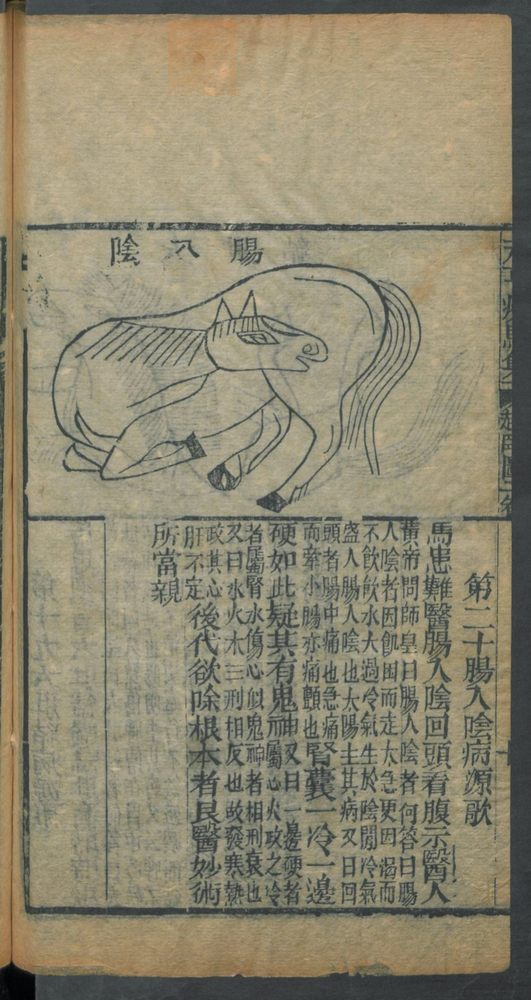 陰入腸
第二十腸入陰病源歌
馬患難醫腸入陰回頭看腹示醫人
黄帝問師皇曰腸入陰者何答曰腸
人陰者因飢困而走大急更因渴而
不飲飲水大過冷氣生於陰間冷氣
盛人腸入陰也太陽主其病又曰回
頭者腸中痛也急痛
而牽小腸亦痛顫也腎囊一冷一邊
硬如此疑其有鬼神又曰一邊硬者
者属腎水傷心似鬼神者相刑衰也
又曰水火木三刑相反也故發寒熱
政其心
肝不定後代欲除根本者良醫妙術
所當親